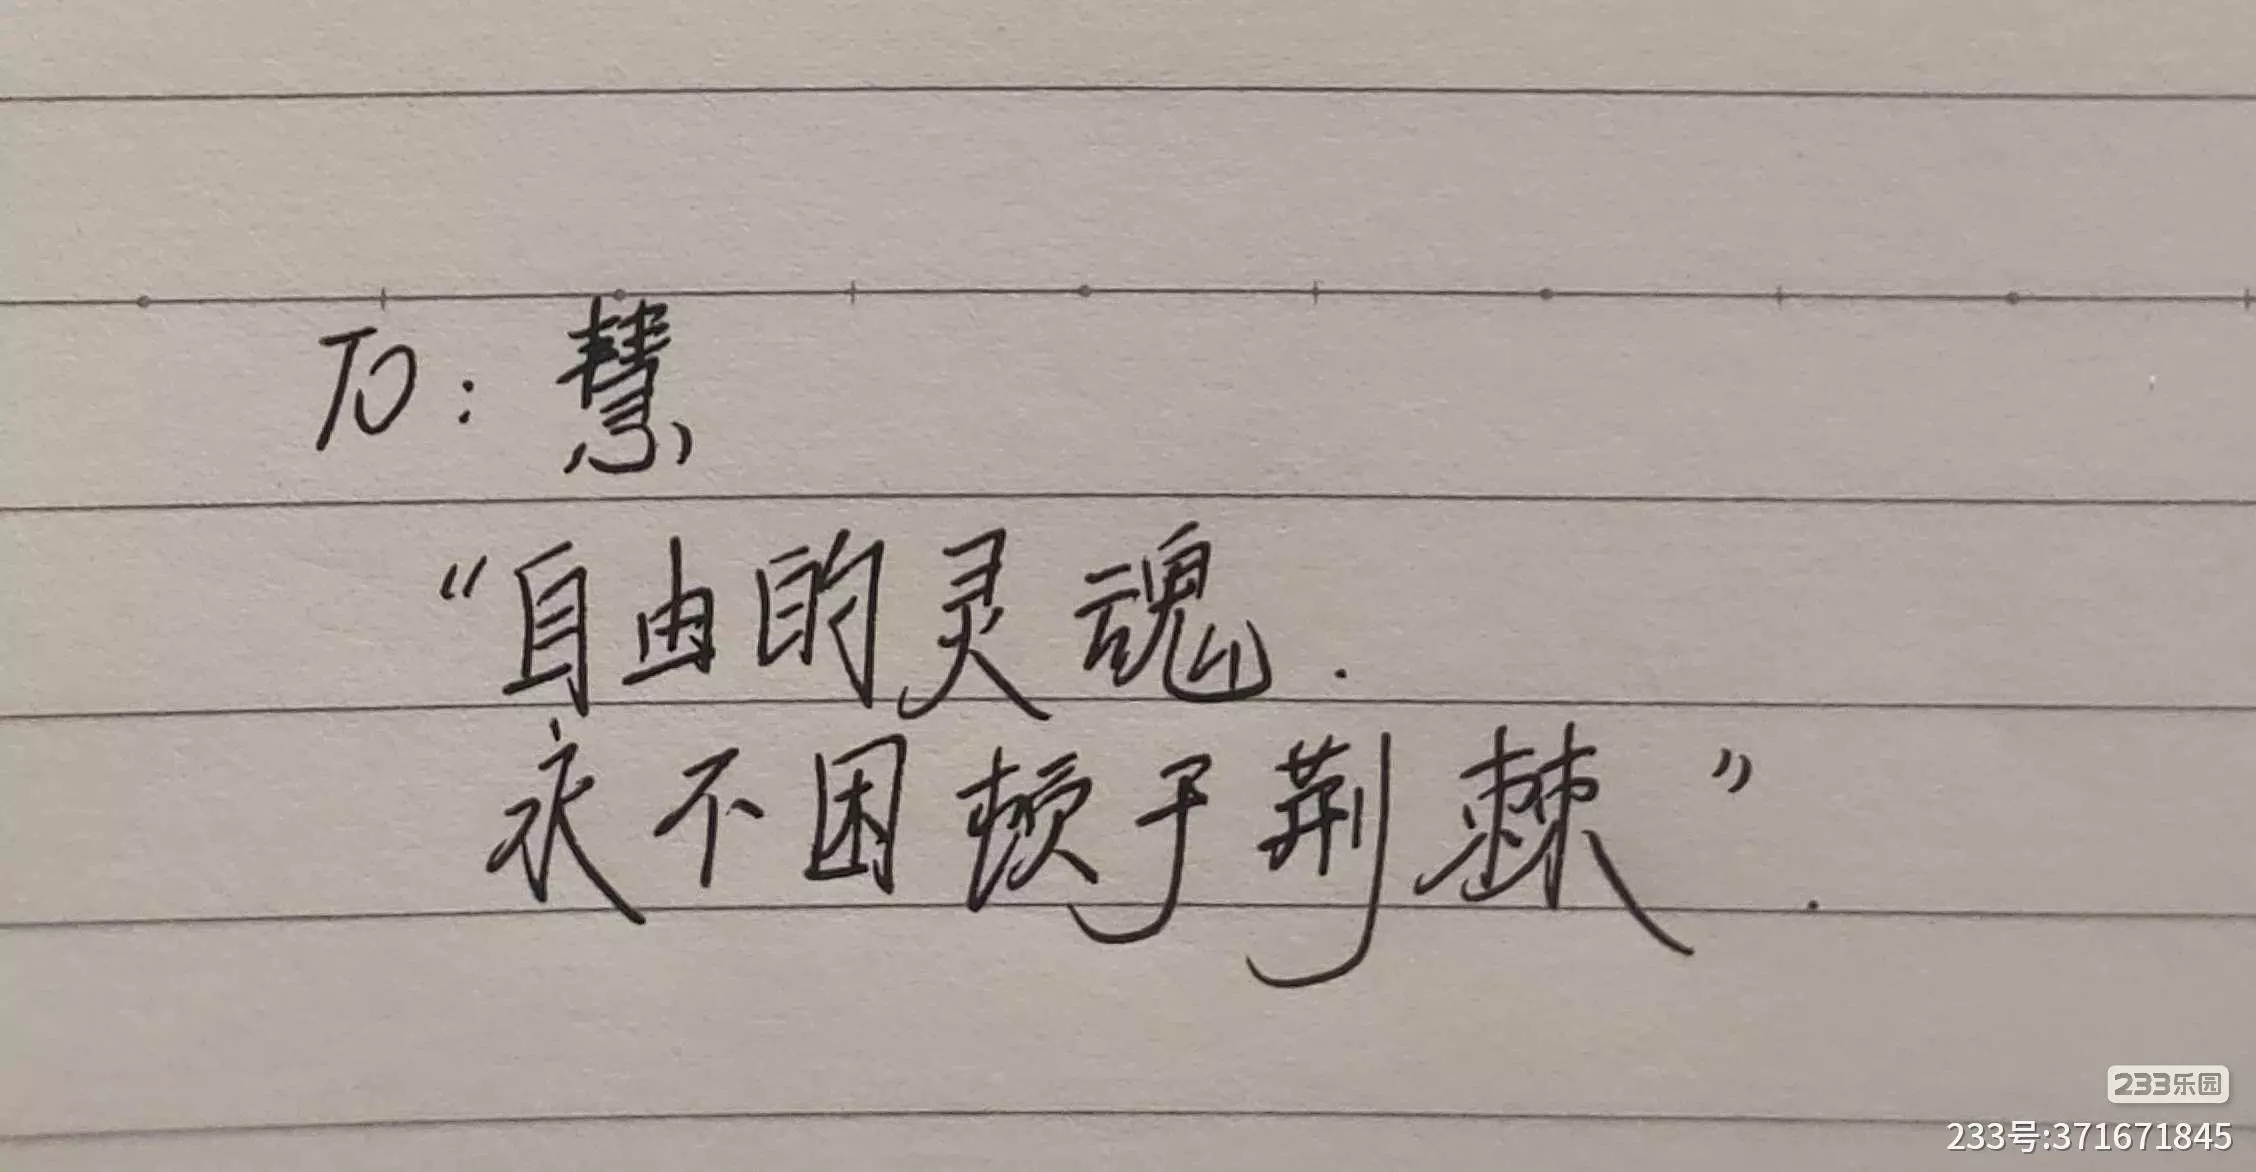 To:慧
“自由的灵魂.
永不困顿于荆棘”.
233乐园
233号:371671845